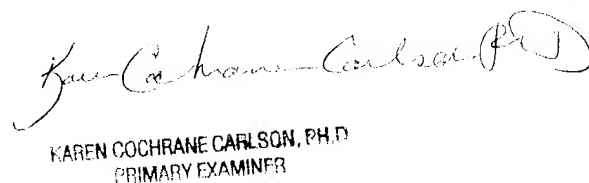 Karen Cochrane Carlson, Ph.D
KAREN COCHRANE CARLSON, PH.D
PRIMARY EXAMINER